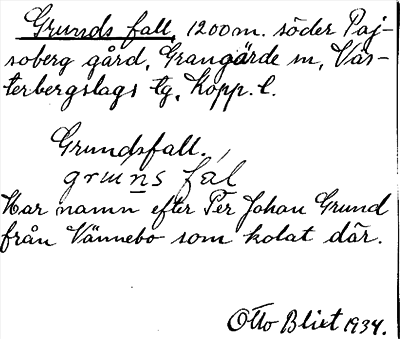 Grunds fall, 1200 m. söder Paj-
soberg gård, Grangärde sn, Väs-
terbergslags tg, Kopp. l.
Grundsfall.
gruns fal
Har namn efter Per Johan Grund
från Vännebo som kolat där.
Otto Blixt 1934.